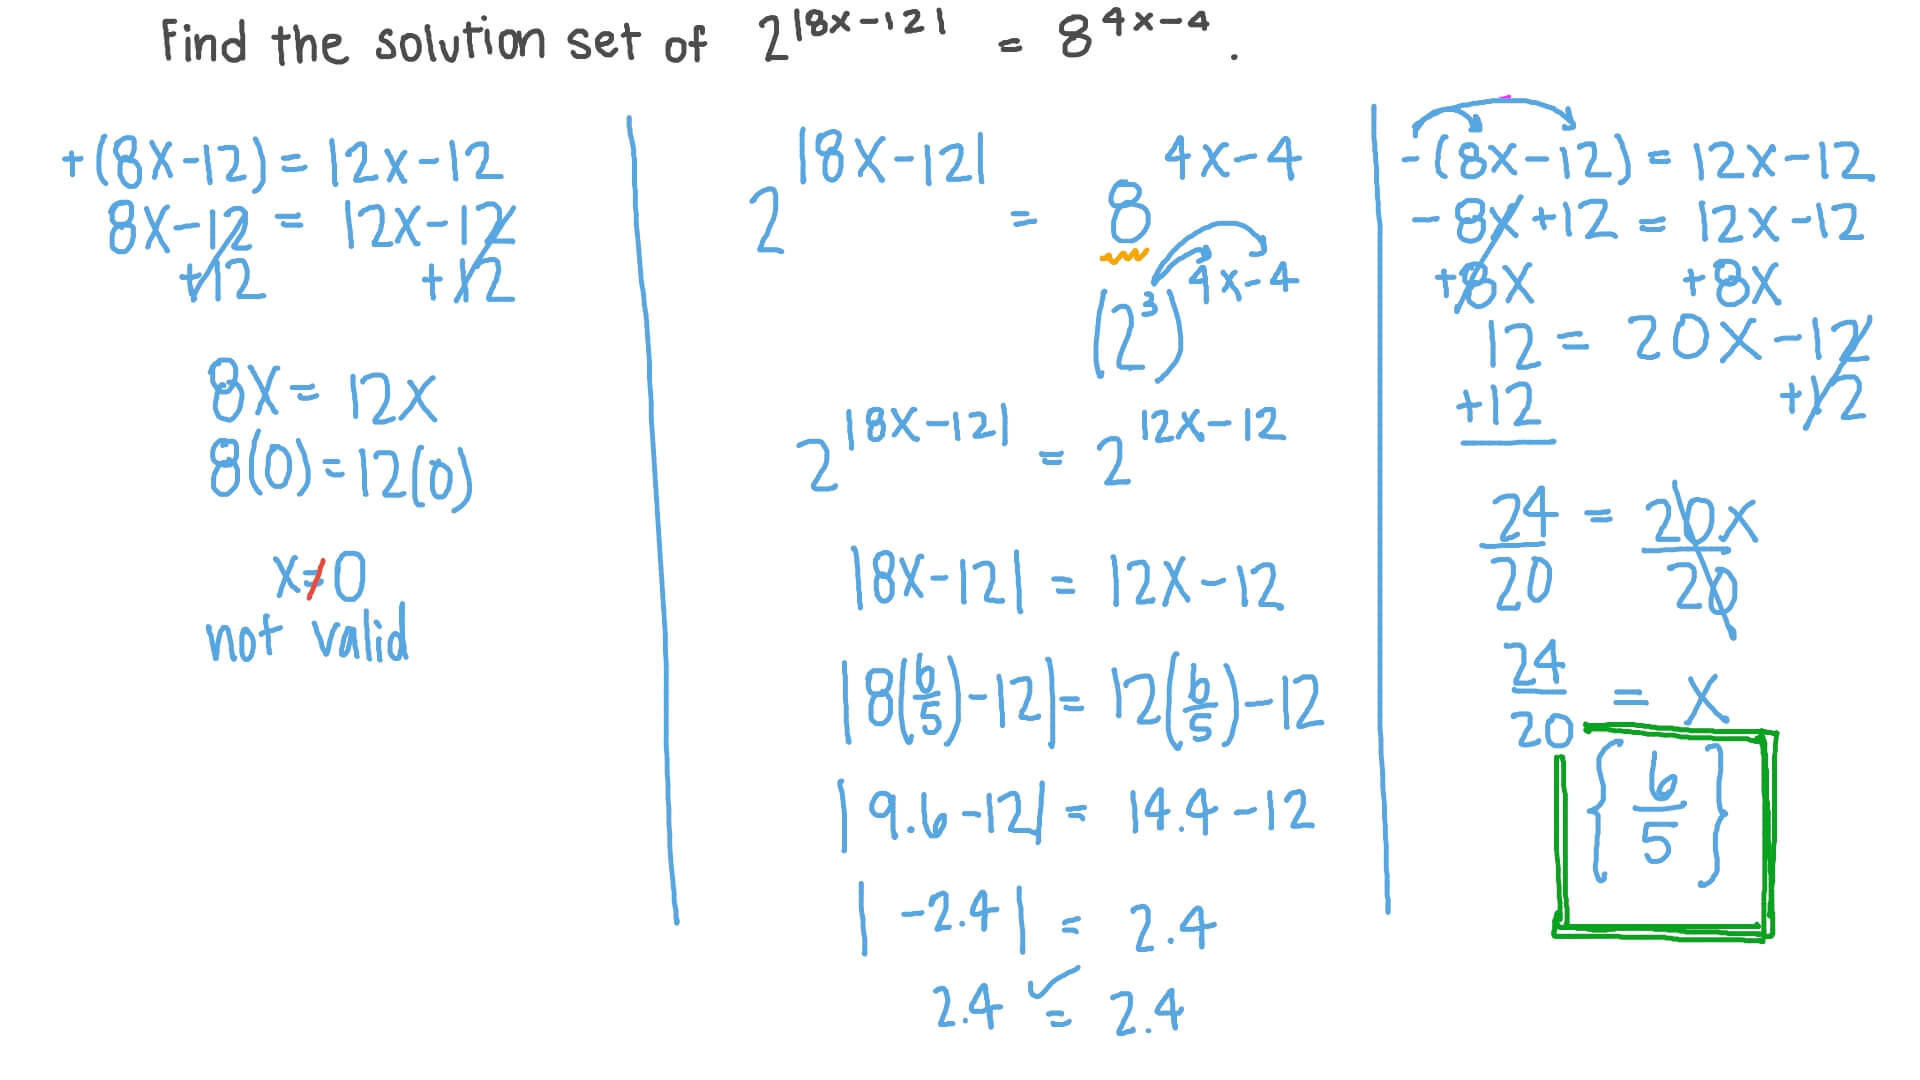 Find the solution set of 2^|8x-12| = 8^4x-4.
+(8x-12) = 12x-12
8x-12 = 12x-12
+12 +12
8x = 12x
8(0) = 12(0)
x≠0
not valid
2^|8x-12| = 8^4x-4
(2^3)^4x-4
2^|8x-12| = 2^12x-12
|8x-12| = 12x-12
|8(6/5)-12| = 12(6/5)-12
|9.6-12| = 14.4-12
|-2.4| = 2.4
2.4 ✓= 2.4
-(8x-12) = 12x-12
-8x+12 = 12x-12
+8x +8x
12 = 20x-12
+12 +12
24/20 = 20x/20
24/20 = x
{6/5}